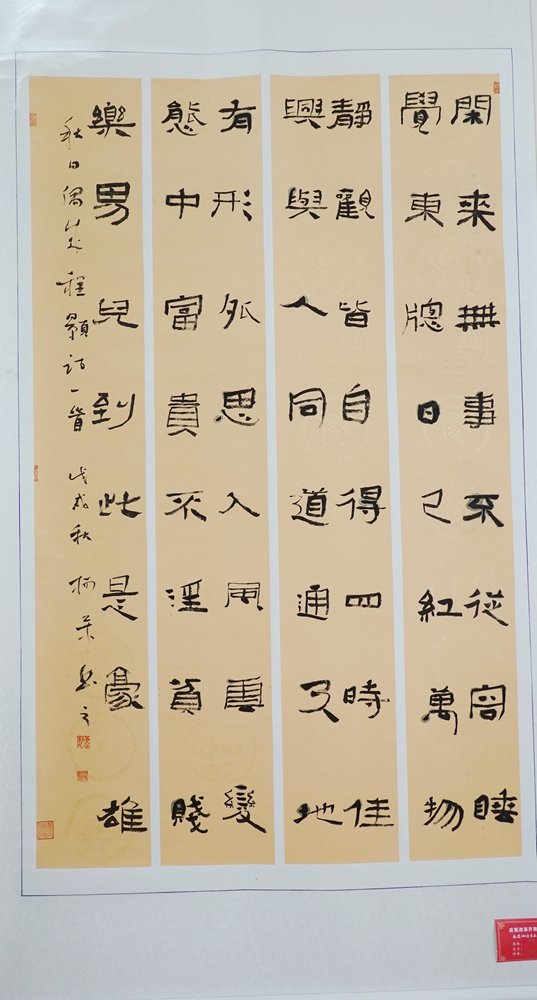 閑来無事不從容睡
覺東窓日已紅萬物
靜觀皆自得四時佳
興與人同道通天地
有形外思入風雲變
態中富貴不淫貧賤
樂男兒到此是豪雄
秋日偶成 程顥詩一首 戊戌秋 書之
庆祝改革开放